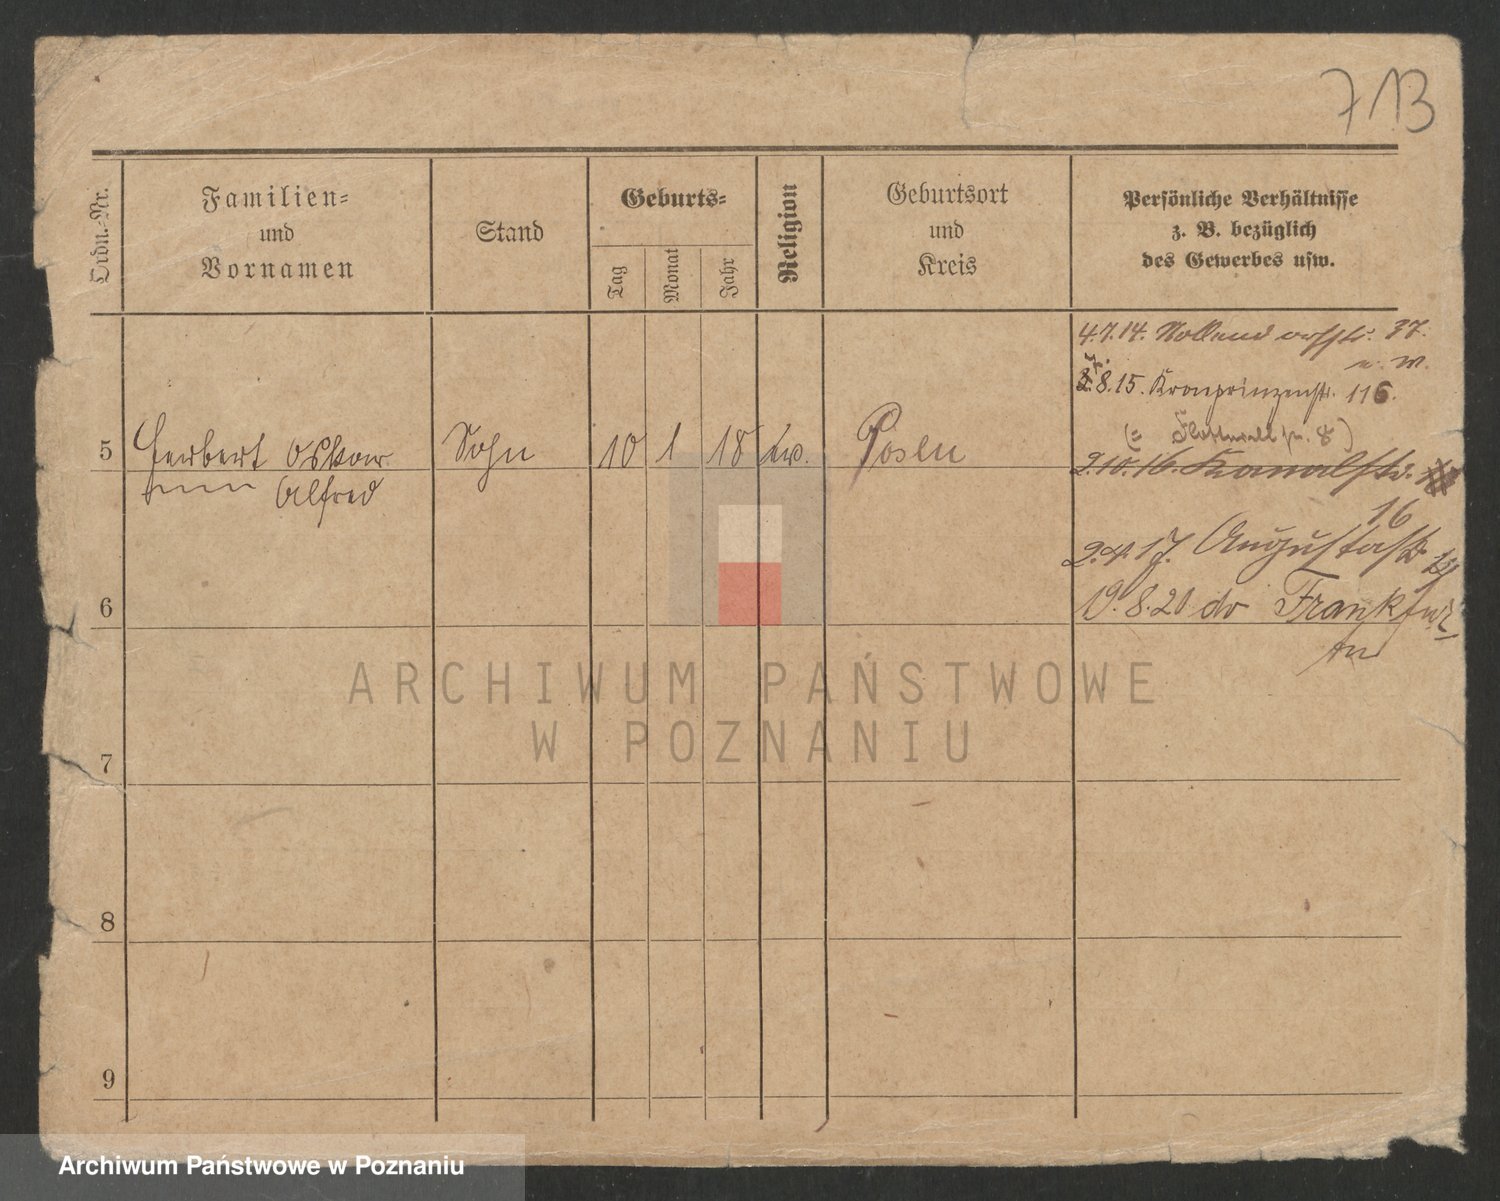 713
Ordn.-Nr.
Familien-
und
Vornamen
Stand
Geburts-
Tag
Monat
Jahr
Religion
Geburtsort
und
Kreis
Persönliche Verhältnisse
z. B. bezüglich
des Gewerbes usw.
4.7.14. 37.
8.15. Kronprinzenstr. 116.
5 Herbert Oskar Sohn 10 1 18 ev. Posen
Alfred
2.10.16. Kanalstr.
16
2.4.17. Augustastr.
19.8.20 do Frankfurt
6
7
8
9
ARCHIWUM PAŃSTWOWE
W POZNANIU
Archiwum Państwowe w Poznaniu